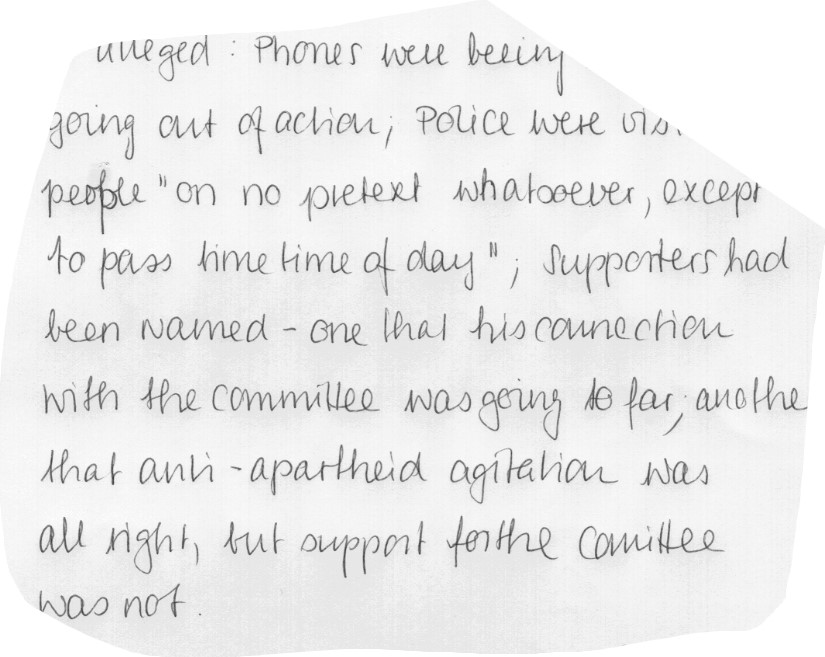 alleged : Phones were beeing
going out of action; Police were
people "on no pretext whatsoever, except
to pass time time of day"; Supporters had
been warned - one that his connection
with the committee was going to far; anothe
that anti-apartheid agitation was
all right, but support for the Comittee
was not.